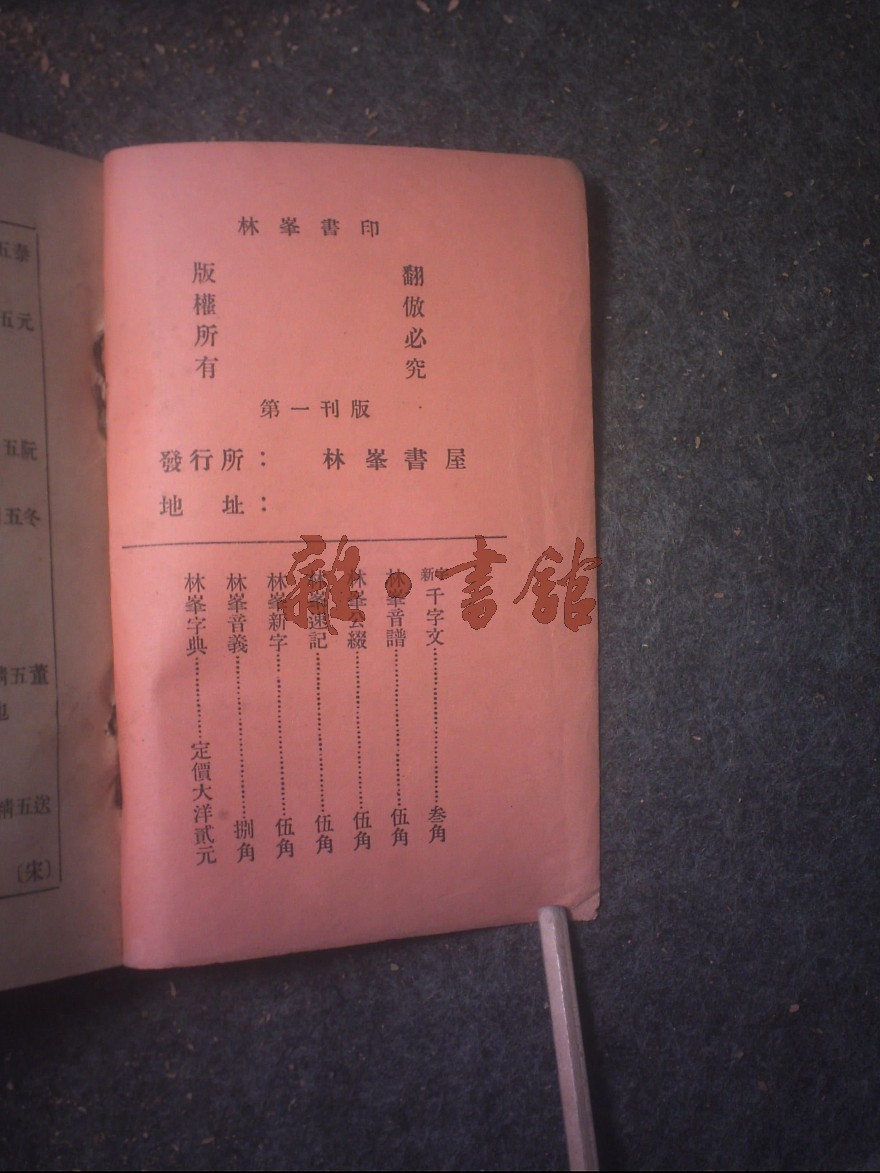 林峯書印
翻倣必究
版權所有
第一刊版
發行所：林峯書屋
地址：
新字千字文……叁角
林峯音譜……伍角
林峯公綴……伍角
林峯速記……伍角
林峯新字……伍角
林峯音義……捌角
林峯字典……定價大洋貳元
雜·書館
五泰
五元
五阮
五冬
五董
五送
〔宋〕